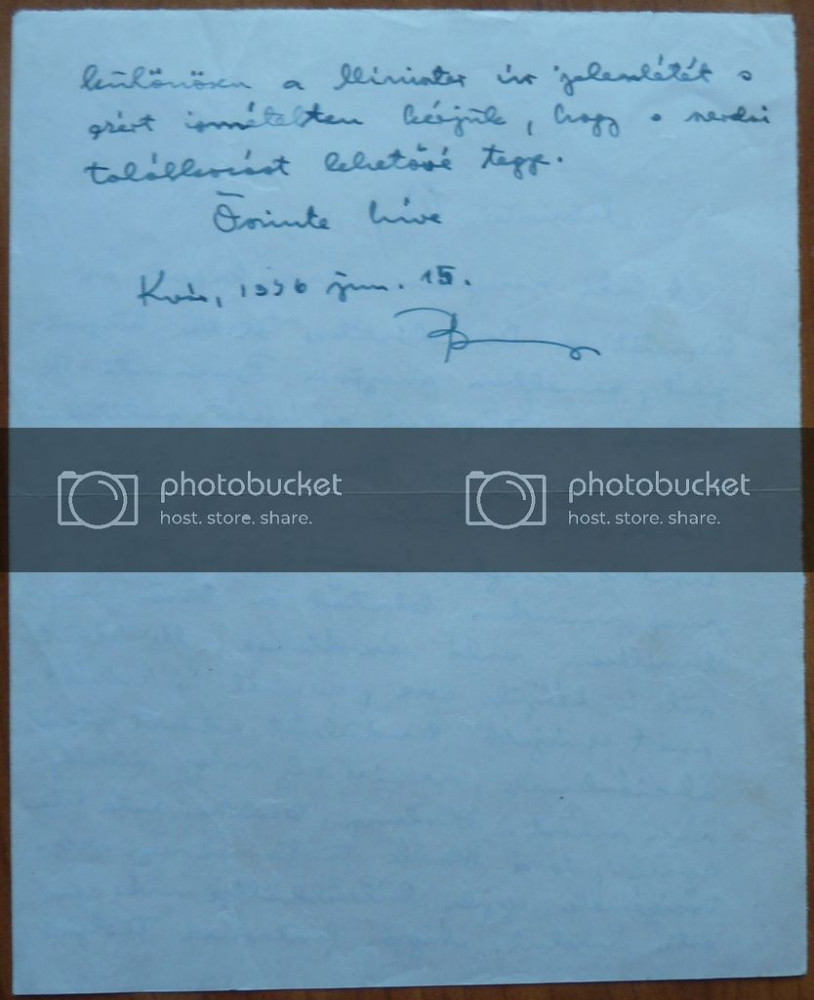 különösen a Miniszter úr jelenlétét s
ezért ismételten kérjük, hogy a
találkozást lehetővé tegye.
Őszinte híve
Kvár, 1996 jun. 15.
photobucket photobucket
host. store. share. host. store. share.